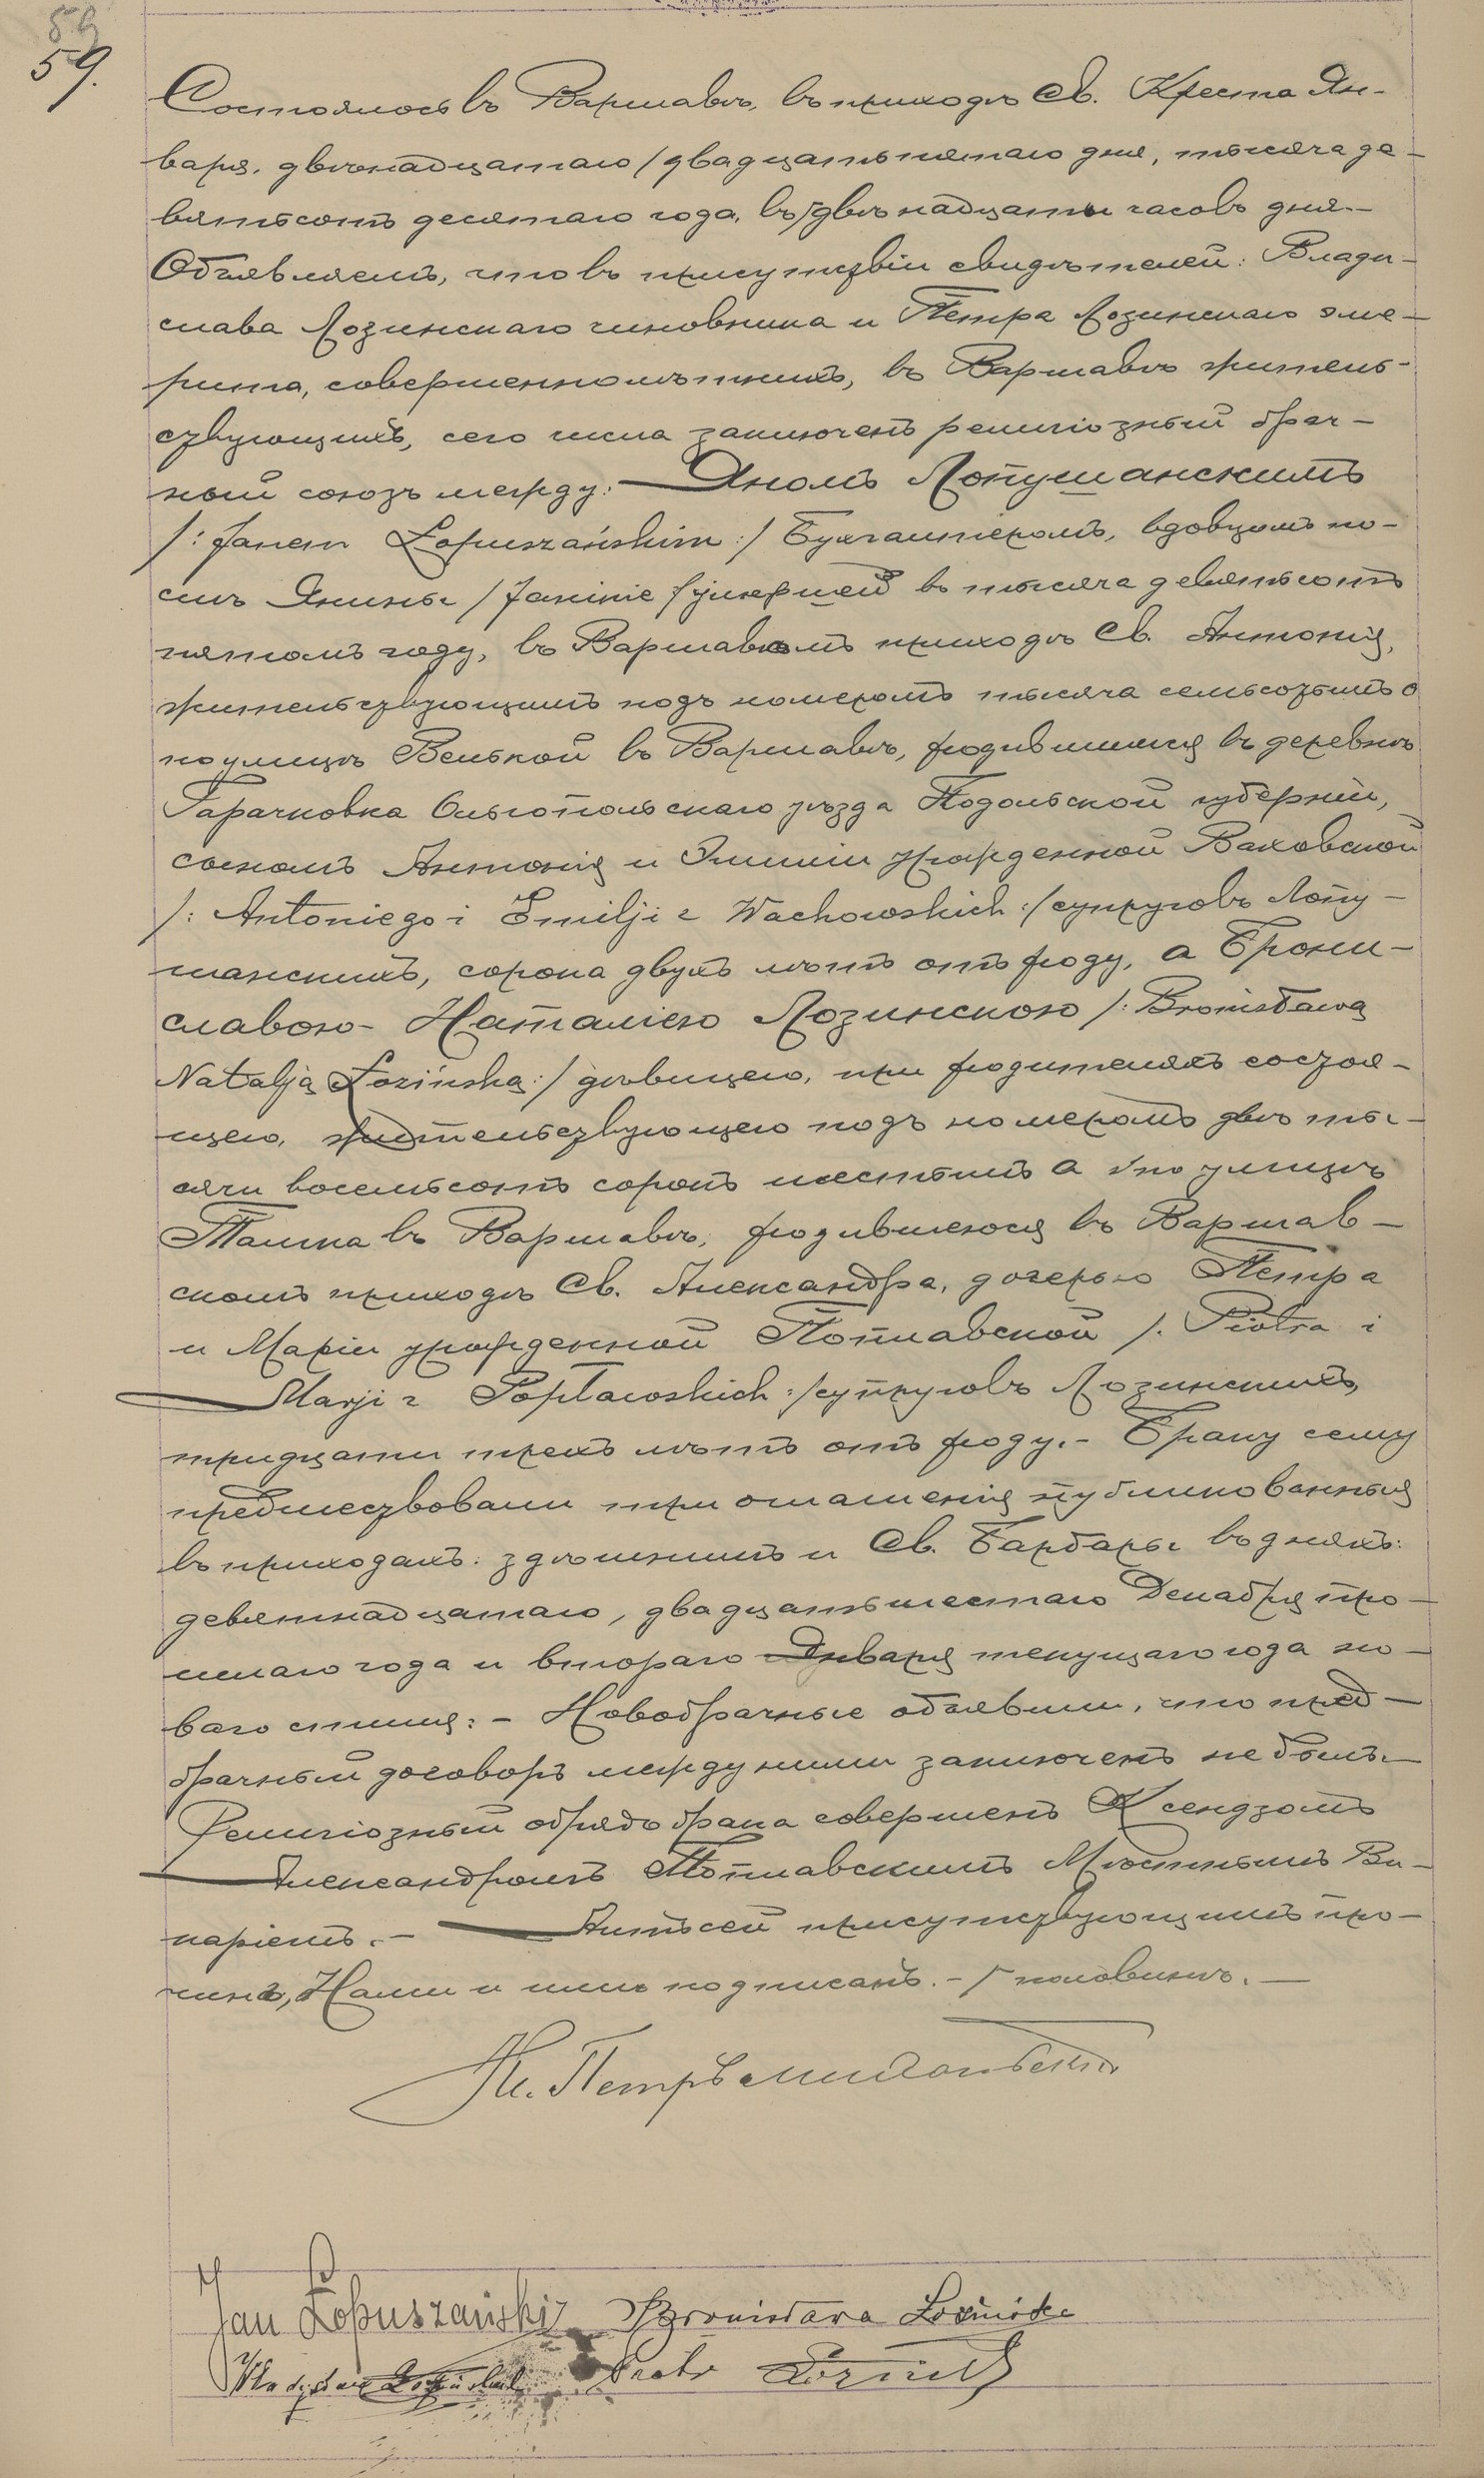 59
59.
Состоялось въ Варшавѣ, въ приходѣ Св. Креста Ян-
варя, двѣнадцатаго / двадцатьпятаго дня, тысяча де-
вятьсотъ десятаго года, въ ⌈двѣнадцать часовъ дня.-
Объявляемъ, что въ присутствіи свидѣтелей: Влади-
слава Лозинскаго чиновника и Петра Лозинскаго эме-
рита, совершеннолѣтнихъ, въ Варшавѣ житель-
ствующихъ, сего числа заключенъ религіозный брач-
ный союзъ между: Яномъ Лопушанскимъ
/: Janem Łopuszańskim :/ Бухгалтеромъ, вдовцомъ по-
слѣ Янины / Janinie / умершей въ тысяча девятьсотъ
пятомъ году, въ Варшавскомъ приходѣ Св. Антонія,
жительствующимъ подъ номеромъ тысяча семьсотымъ о
по улицѣ Вспольной въ Варшавѣ, родившимся въ деревнѣ
Гарачковка Ольгопольскаго уѣзда Подольской губерніи,
сыномъ Антонія и Эмиліи урожденной Ваховской
/: Antoniego i Emilji z Wachowskich :/ супруговъ Лопу-
шанскихъ, сорока двухъ лѣтъ отъ роду, а Брони-
славою - Наталіею Лозинскою /: Bronisławą
Natalją Łozińską :/ дѣвицею, при родителяхъ состоя-
щею, жительствующею подъ номеромъ двѣ ты-
сячи восемьсотъ сорокъ шестымъ а по улицѣ
Тамка въ Варшавѣ, родившеюся въ Варшав-
скомъ приходѣ Св. Александра, дочерью Петра
и Маріи урожденной Поплавской /: Piotra i
Marji z Popławskich :/ супруговъ Лозинскихъ,
тридцати трехъ лѣтъ отъ роду.- Браку сему
предшествовали три оглашенія публикованныя
въ приходахъ: здѣшнимъ и Св. Барбары въ дняхъ:
девятнадцатаго, двадцатьшестаго Декабря про-
шлаго года и втораго Января текущаго года но-
ваго стиля:- Новобрачные объявили, что пред-
брачный договоръ между ними заключенъ не былъ.-
Религіозный обрядъ брака совершенъ Ксендзомъ
Александромъ Поплавскимъ Мѣстнымъ Ви-
каріемъ.- Актъ сей присутствующимъ про-
читанъ, Нами и ими подписанъ.- ⌈ половинѣ.-
Кс. Петръ
Jan Łopuszański Bronisława Łozińska
Władysław Łoziński Piotr Łoziński